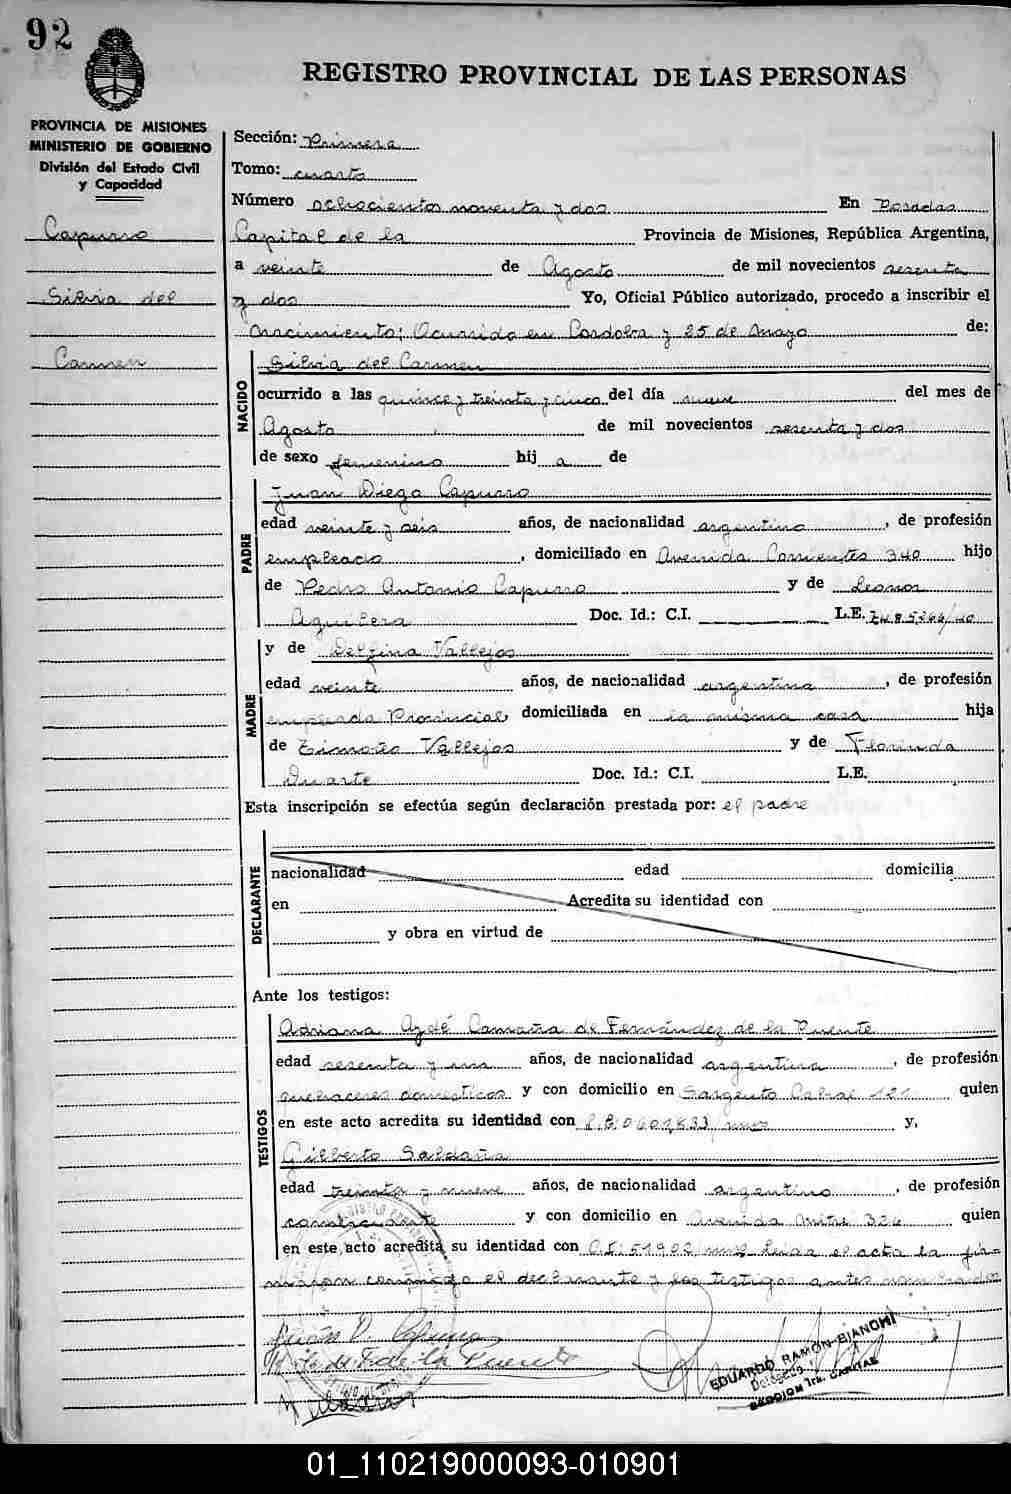 92
REGISTRO PROVINCIAL DE LAS PERSONAS
PROVINCIA DE MISIONES
MINISTERIO DE GOBIERNO
División del Estado Civil
y Capacidad
Capurro
Silvia del
Carmen
Sección: Primera
Tomo: cuarto
Número ochocientos noventa y dos En Posadas
Capital de la Provincia de Misiones, República Argentina,
a veinte de Agosto de mil novecientos sesenta
y dos Yo, Oficial Público autorizado, procedo a inscribir el
nacimiento; Ocurrido en Cordoba y 25 de Mayo de:
NACIDO
Silvia del Carmen
ocurrido a las quince y treinta y cinco del día nueve del mes de
Agosto de mil novecientos sesenta y dos
de sexo femenino hij a de
PADRE
Juan Diego Capurro
edad veinte y seis años, de nacionalidad argentino, de profesión
empleado, domiciliado en Avenida Corrientes 340 hijo
de Pedro Antonio Capurro y de Leonor
Aguilera Doc. Id.: C.I. L.E.
MADRE
y de Delfina Vallejos
edad veinte años, de nacionalidad argentina, de profesión
empleada Provincial, domiciliada en la misma casa hija
de Timoteo Vallejos y de Florinda
Duarte Doc. Id.: C.I. L.E.
Esta inscripción se efectúa según declaración prestada por: el padre
DECLARANTE
nacionalidad edad domicilia
en Acredita su identidad con
y obra en virtud de
Ante los testigos:
TESTIGOS
Adriana Aydé Camaña de Fernández de la Puente
edad sesenta y un años, de nacionalidad argentina, de profesión
quehaceres domesticos y con domicilio en Sargento Cabral 121 quien
en este acto acredita su identidad con y,
Gilberto Saldaña
edad treinta y nueve años, de nacionalidad argentino, de profesión
comerciante y con domicilio en Avenida Mitre 326 quien
en este acto acredita su identidad con C.I: 51902 Leida el acta la fir-
maron conmigo el declarante y los testigos antes nombrados
Juan D. Capurro
de F. de la Puente
EDUARDO RAMON BIANCHI
Delegado
SECCION 1ra.
01_110219000093-010901